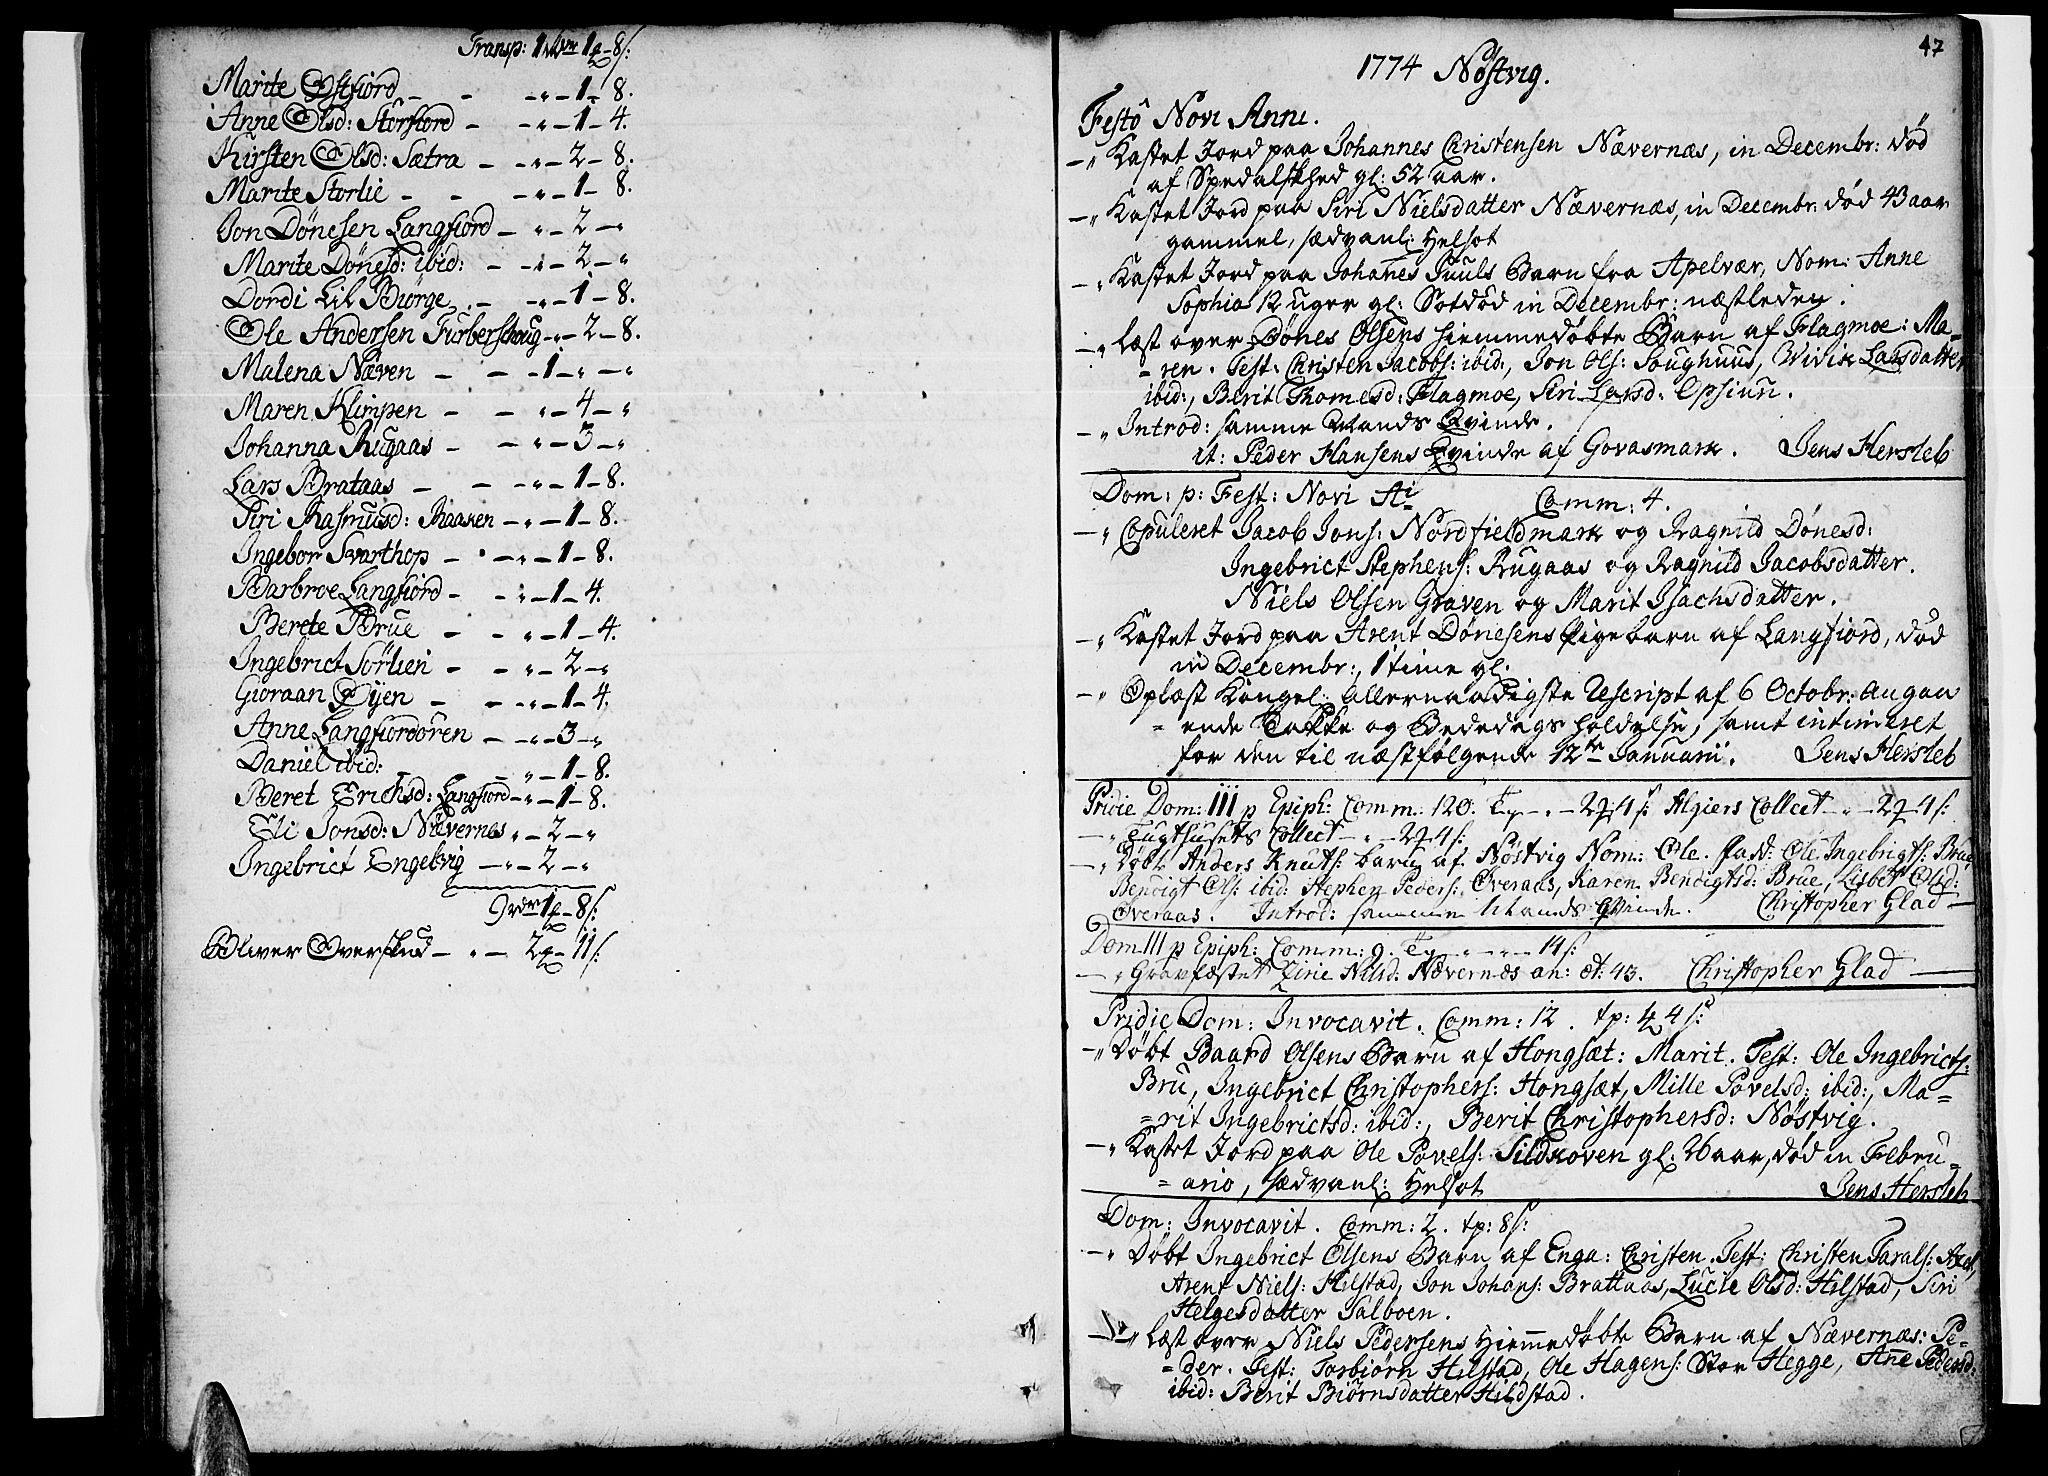 Transp: 1 rdr 1 - 8 s:
Marite Østfiord - - - „ - 1 - 8.
Anne Olsd: Storfiord - - „ - 1 - 4.
Kirsten Olsd: Sætra - - „ - 2 - 8.
Marite Storlie - - - „ - 1 - 8.
Jon Dönesen Langfiord - „ - 2 - „
Marite Dönesd: ibid: - - „ - 2 - „
Dordi Lil Börge - - „ - 1 - 8.
Ole Andersen Furberschaug - „ - 2 - 8.
Malena Næven - - - 1 - „ - „
Maren Klimpen - - „ - 4 - „
Johanna Rugaas - - „ - 3 - „
Lars Brataas - - - „ - 1 - 8.
Siri Rasmusd: Raaken - „ - 1 - 8.
Ingebor Svarthop - - „ - 1 - 8.
Barbroe Langfiord - - „ - 1 - 4.
Berete Brue - - „ - 1 - 4.
Ingebrict Sörlien - - „ - 2 - „
Gioraan Øyen - - „ - 1 - 4.
Anne Langfiordören - „ - 3 - „
Daniel ibid: - „ - 1 - 8.
Beret Erichsd: Langfiord - „ - 1 - 8.
Eli Jonsd: Nævernes „ - 2 - „
Ingebrict Engelvig - „ - 2 - „
9 rdr 1 - 8 s:
Bliver Overskud - „ - 2 - 11 s:
47
1774 Nöstvig.
Festo Novi Anni.
- „ Kastet Jord paa Johannes Christensen Nævernæs, in Decembr: död
af Spedalskhed gl: 52 aar.
- „ Kastet Jord paa Siri Nielsdatter Nævernæs, in Decembr: död 43 aar
gammel, sædvanl: Helsot
- „ Kastet Jord paa Johanes Juuls Barn fra Apelvær, Nom: Anne
Sophia 12 uger gl: Sotdöd in Decembr: næstleden.
- „ Læst over Dönes Olsens hiemmedöbte Barn af Flagmoe: Ma-
-ren. Test: Christen Jacobs: ibid:, Jon Ols: Soughuus, Wivike Larsdatter
ibid:, Berit Thomesd: Flagmoe, Siri Larsd: Opsiun.
- „ Introd: samme Mands Qvinde.
it: Peder Hansens Qvinde af Govasmark. Jens Hersleb
Dom: p: Fest: Novi Ai Comm: 4.
- „ Copuleret Jacob Jons: Nordfieldmark og Ragnild Dönesd:
Ingebrict Stephens: Rugaas og Ragnild Jacobsdatter.
Niels Olsen Graven og Marit Isachsdatter.
- „ Kastet Jord paa Arent Dönesens Pigebarn af Langfiord, död
in Decembr:, 1 time gl:
- „ Oplæst Kongel: allernaadigste Rescript af 6 Octobr: angaa
-ende Takke og Bededags holdelse, samt intimeret
for den til næstfölgende 12te Januarii. Jens Hersleb
Pridie Dom: III p Epiph: Comm: 120. - „ - 2 4 s: Algiers Collect - „ - 2 4 s:
- „ Tugthusets Collect - „ - 2 4 s:
- „ Döbt Anders Knuts: barn af Nöstvig Nom: Ole. fadd: Ole Ingebrigts: Brue
Bendigt Ols: ibid: Stephen Peders: Overaas, Karen Bendigtsd: Brue, Lisbet Olsd:
Overaas. Introd: samme Mands Qvinde. Christopher Glad -
Dom III p Epiph: Comm: 9. - „ - 14 s:
- „ Gravfæstet Zirie Nilsd: Nævernæs an: æt: 43. Christopher Glad -
Pridie Dom: Invocavit. Comm: 12. tp: 4 4 s:
- „ Döbt Baard Olsens Barn af Hongsæt: Marit. Test: Ole Ingebricts:
Bru, Ingebrict Christophers: Hongsæt, Mille Povelsd: ibid:, Ma-
-rit Ingebrictsd: ibid:, Berit Christophersd: Nöstvig.
- „ Kastet Jord paa Ole Povels: Sildkoven gl: 26 aar, död in Febru-
-ario, sædvanl: Helsot Jens Hersleb
Dom: Invocavit. Comm: 2. tp: 8 s:
- „ Döbt Ingebrict Olsens Barn af Enga: Christen. Test: Christen Tarals:
Arent Niels: Hilstad, Jon Johans: Brattaas, Lucie Olsd: Hilstad, Siri
Helgesdatter Salboen.
- „ Læst over Niels Pedersens Hiemedöbte Barn af Nævernæs: Pe-
-der. Test: Torbiörn Hilstad, Ole Hagens: Stor Hegge, Ane Pedersd:
ibid: Berit Biörnsdatter Hildstad.